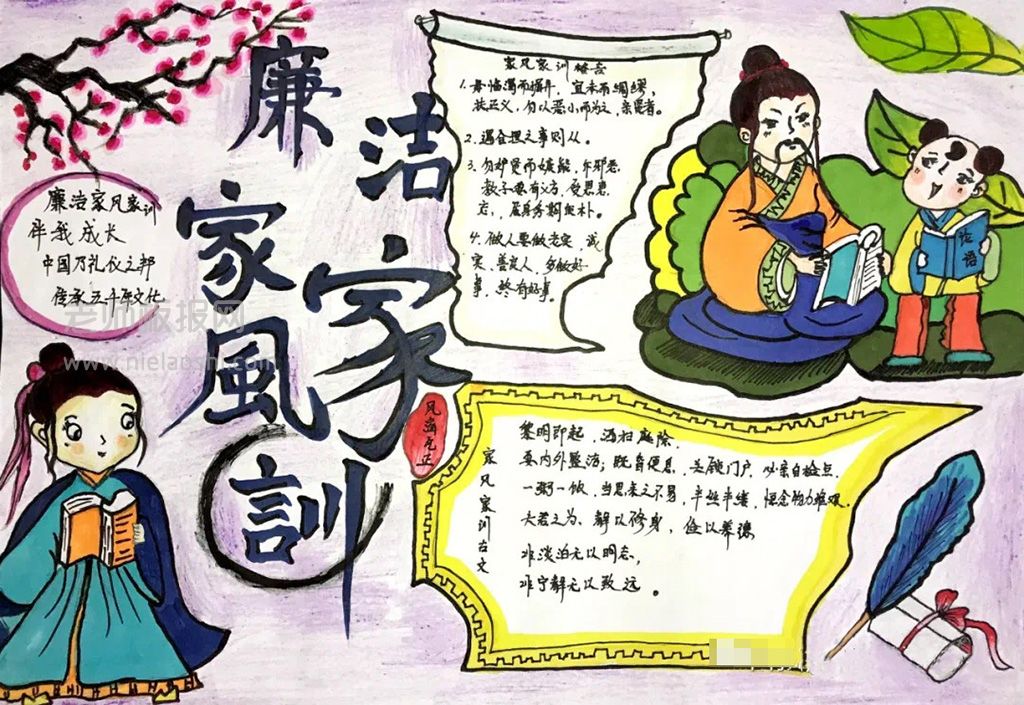 廉洁
家風家訓
廉洁家风家训
伴我成长
中国乃礼仪之邦
传承五千年文化
老师板报网
www.nielaoshi.com
家风家训格言
1. 毋临渴而掘井，宜未雨绸缪，
扶正义，勿以恶小而为之，亲贤者。
2. 遇合理之事则从。
3. 勿妒贤而嫉能，斥邪恶，
教子要有义方，
居身务期质朴。
4. 做人要做老实、诚
实、善良人，多做好
事，终有好事。
论语
风清气正
家风家训古文
黎明即起，洒扫庭除，
要内外整洁；既昏便息，关锁门户，必亲自检点，
一粥一饭，当思来之不易，半丝半缕，恒念物力维艰。
夫君之为，静以修身，俭以养德，
非淡泊无以明志，
非宁静无以致远。